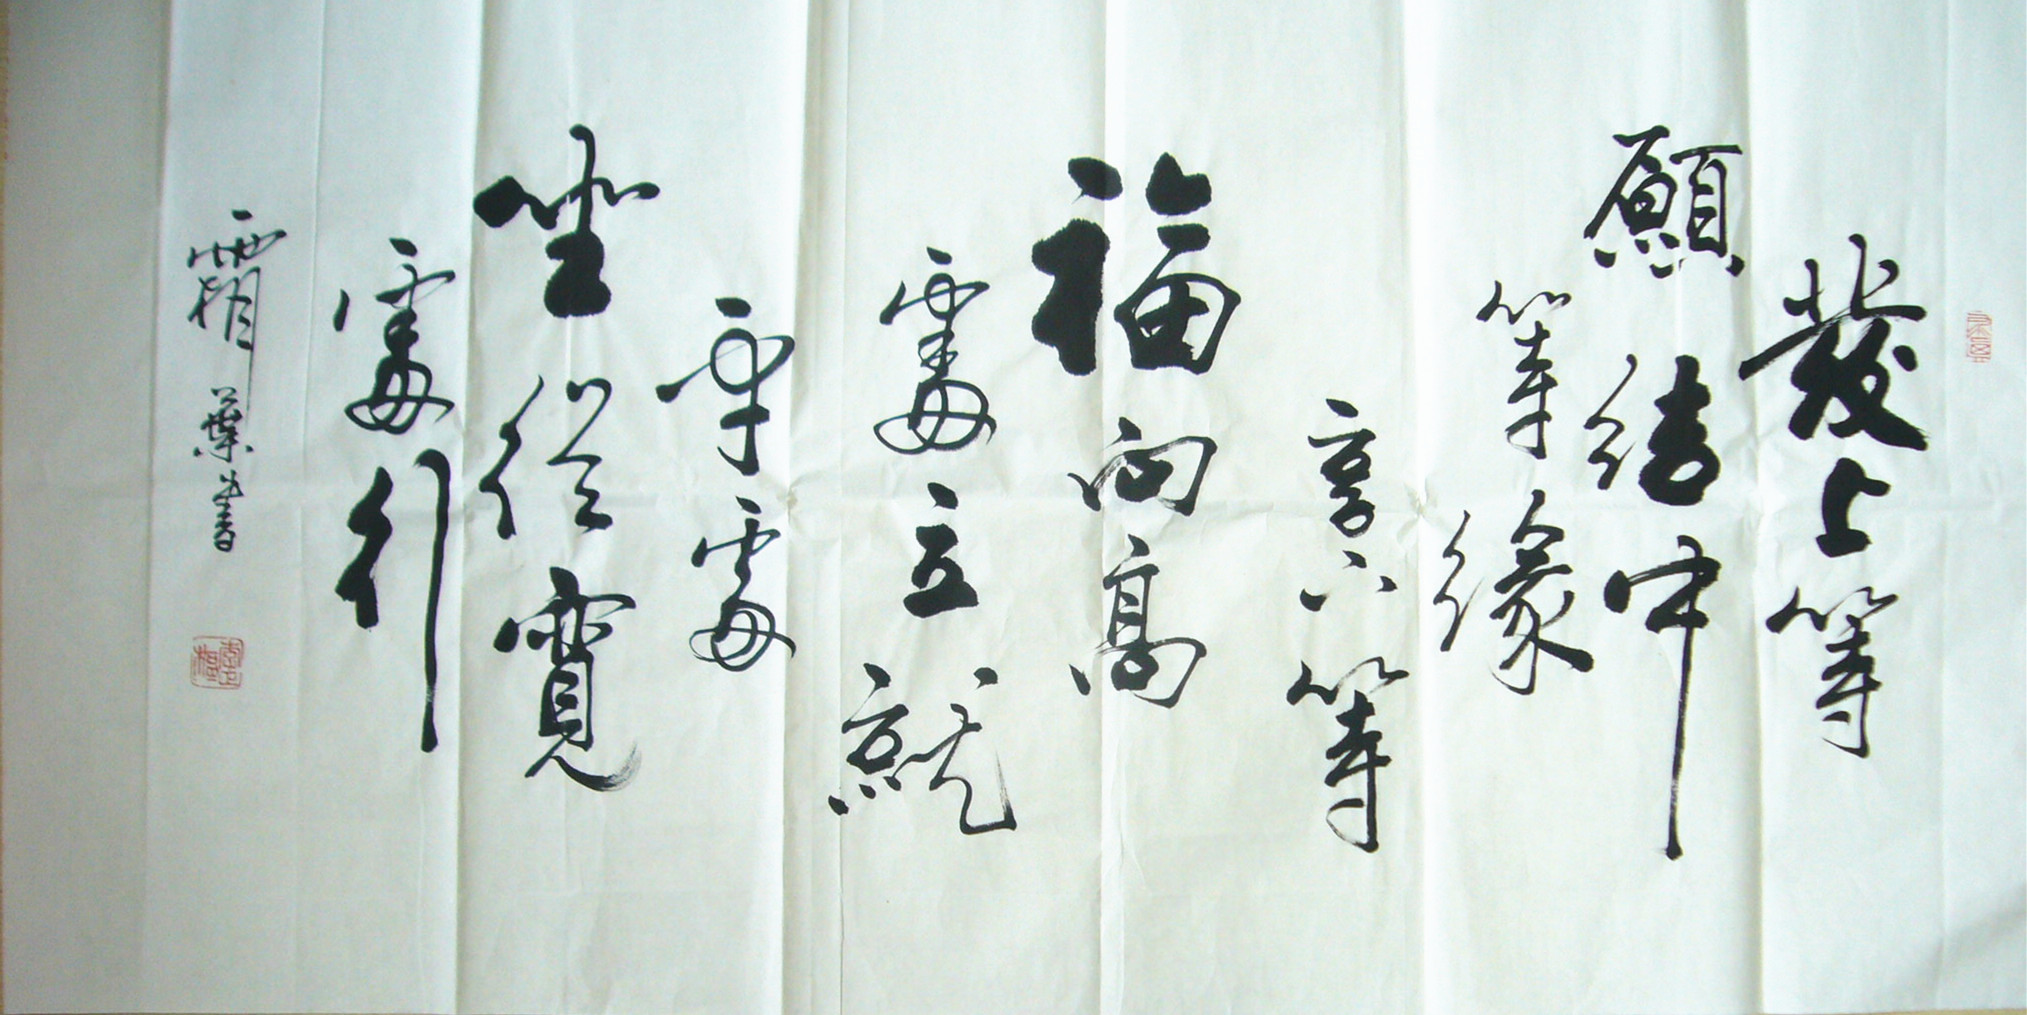 發上等
願結中
等緣
享下等
福向高
處立就
平處
坐從寬
處行
霜葉書